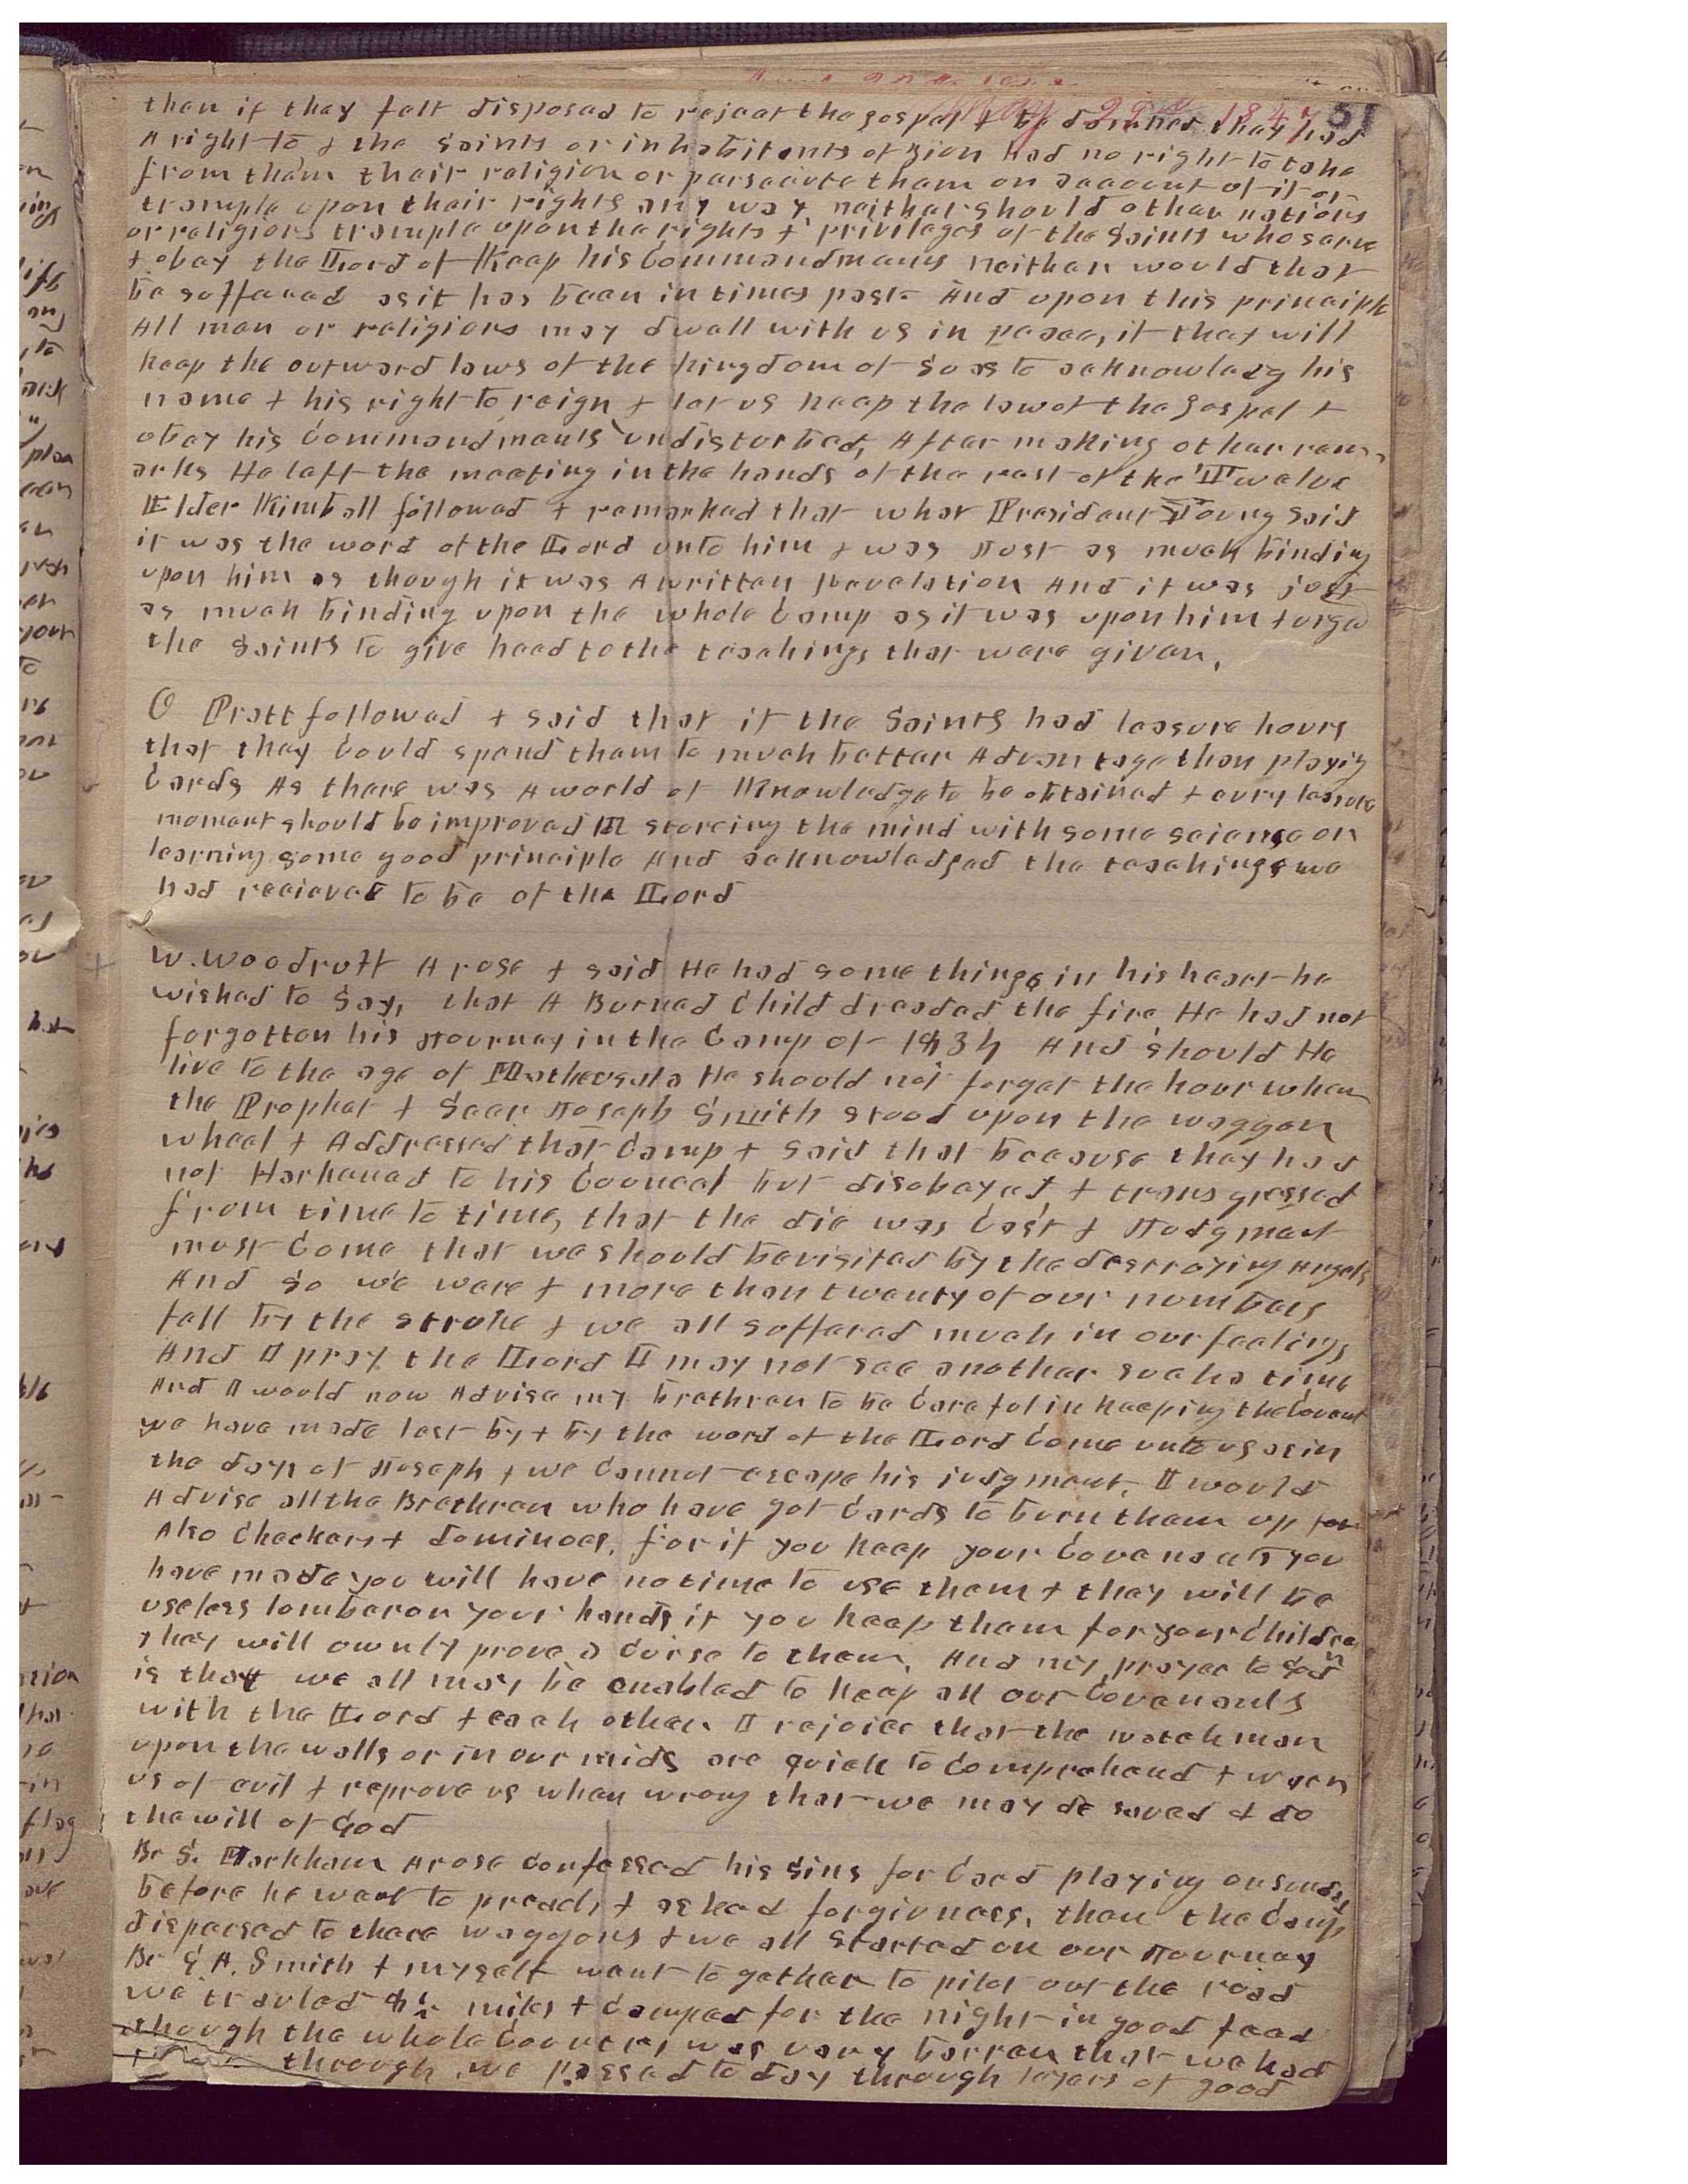 May 29th 1847 51
then if they felt disposed to reject the gospel & be damned they had
A right to & the Saints or inhabitents of Zion had no right to take
from them their religion or persecute them on account of it or
trample upon their rights any way neither should other nations
or religions trample upon the rights & privileges of the Saints who serve
& obey the Lord & Keep his Commandments neither would that
be suffered as it has been in times past. And upon this principle
All men or religions may dwell with us in peace, if they will
keep the outward laws of the kingdom of so as to acknowledg his
name & his right to reign & let us keep the law of the gospel &
obey his Commandments undisturbed, After making other rem-
arks He left the meeting in the hands of the rest of the Twelve
Elder Kimball followed & remarked that what President Young said
it was the word of the Lord unto him & was Just as much binding
upon him as though it was A written Revelation And it was just
as much binding upon the whole Camp as it was upon him & urged
the Saints to give heed to the teachings that were given.
O Pratt followed & said that if the Saints had leasure hours
that they Could spend them to much better Advantage than playig
Cards As there was A world of Knowledge to be obtained & evry leasure
moment should be improved In storeing the mind with some science or
learning some good principle And acknowledged the teachings we
had recieved to be of the Lord
W. Woodruff Arose & said He had some things in his heart he
wished to Say, that A Burned Child dreaded the fire, He had not
forgotten his Journey in the Camp of 1834 And should He
live to the age of Mathusala He should not forget the hour when
the Prophet & Seer Joseph Smith stood upon the waggon
wheel & Addressed that Camp & said that because they had
not Harkened to his Councel but disobeyed & transgressed
from time to time, that the die was Cast & Judgment
must Come that we should be visited by the destroying Angels
And so we were & more than twenty of our numbers
fell by the stroke & we all suffered much in our feelings
And I pray the Lord I may not see another such a time
And I would now Advise my brethren to be Careful in keeping the Covent
we have made lest by & by the word of the Lord Come unto us as in
the days of Joseph & we Cannot escape his judgment. I would
Advise all the Brethren who have got Cards to burn them up for
Also Checkers & dominoes, for if you keep your Covenants you
have made you will have no time to use them & they will be
useless lomber on your hands if you keep them for your Children
they will ownly prove a Curse to them, And my prayer to God
is that we all may be enabled to keep all our Covenants
with the Lord & each other. I rejoice that the watchman
upon the walls or in our mids are quick to Comprehend & warn
us of evil & reprove us when wrong that we may be saved & do
the will of God
Br S. Markham Arose Confessed his sins for Card playing on sunday
before he went to preach, & asked forgivness, then the Camp
dispersed to there waggons & we all started on our Journey
Br G A. Smith & myself went together to pilot out the road
we travled 8½ miles & Camped for the night in good feed
though the whole Country was vary barren that we had
through. we passed to day through layers of good